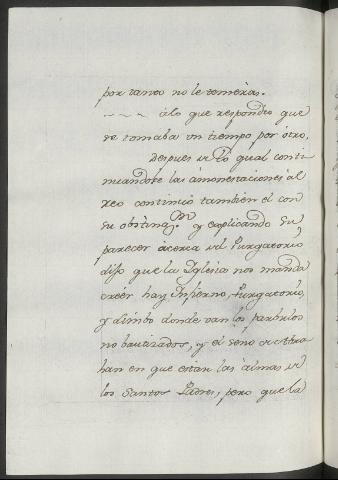 por tanto no le temeras.
~ ~ ~ a lo que respondio que
se tomaba un tiempo por otro,
Despues de lo qual conti
nuandose las amonestaciones al
reo continuó tambien el con
su obstinaⁿ. y explicando su
parecer acerca del Purgatorio
dijo que la Iglesia nos manda
creér hay Infierno, Purgatorio,
y Limbo donde van los parbulos
no bautizados, y el seno de Abra
han en que estan las almas de
los Santos Padres, pero que la